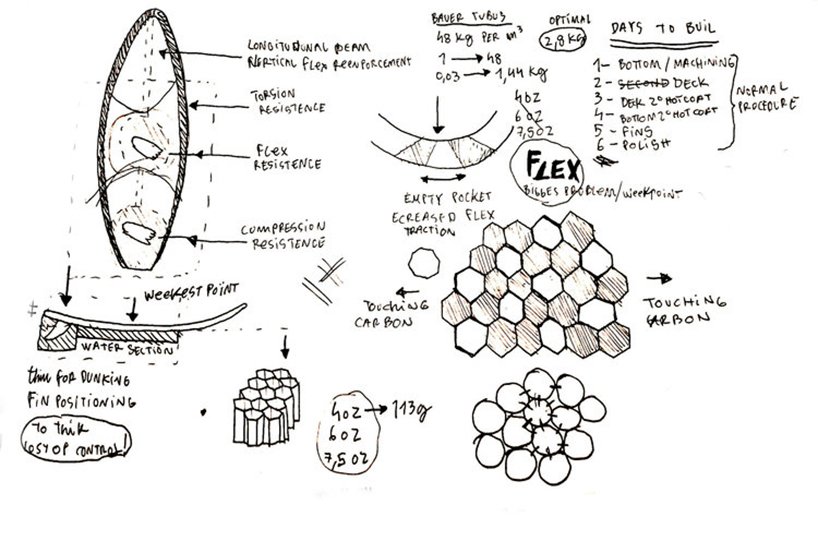 LONGITUDINAL BEAM
VERTICAL FLEX REENFORCEMENT
TORSION
RESISTENCE
FLEX
RESISTENCE
COMPRESSION
RESISTENCE
WEEKEST POINT
WATER SECTION
thin FOR DUNKING
FIN POSITIONING
TO THIK
LOST OF CONTROL!
BAUER TUBUS
48 Kg PER m³
1 → 48
0,03 → 1,44 Kg
OPTIMAL
2,8 KG
4 OZ
6 OZ
7,5 OZ
EMPTY POCKET
ECREASED FLEX
TRACTION
FLEX
BIGGES PROBLEM/WEEKPOINT
DAYS TO BUIL
1- BOTTOM/MACHINING
2- SECOND DECK
3- DECK 2º HOTCOAT
4- BOTTOM 2º HOTCOAT
5- FINS
6- POLISH
NORMAL
PROCEDURE
TOUCHING
CARBON
TOUCHING
CARBON
4 OZ → 113g
6 OZ
7,5 OZ